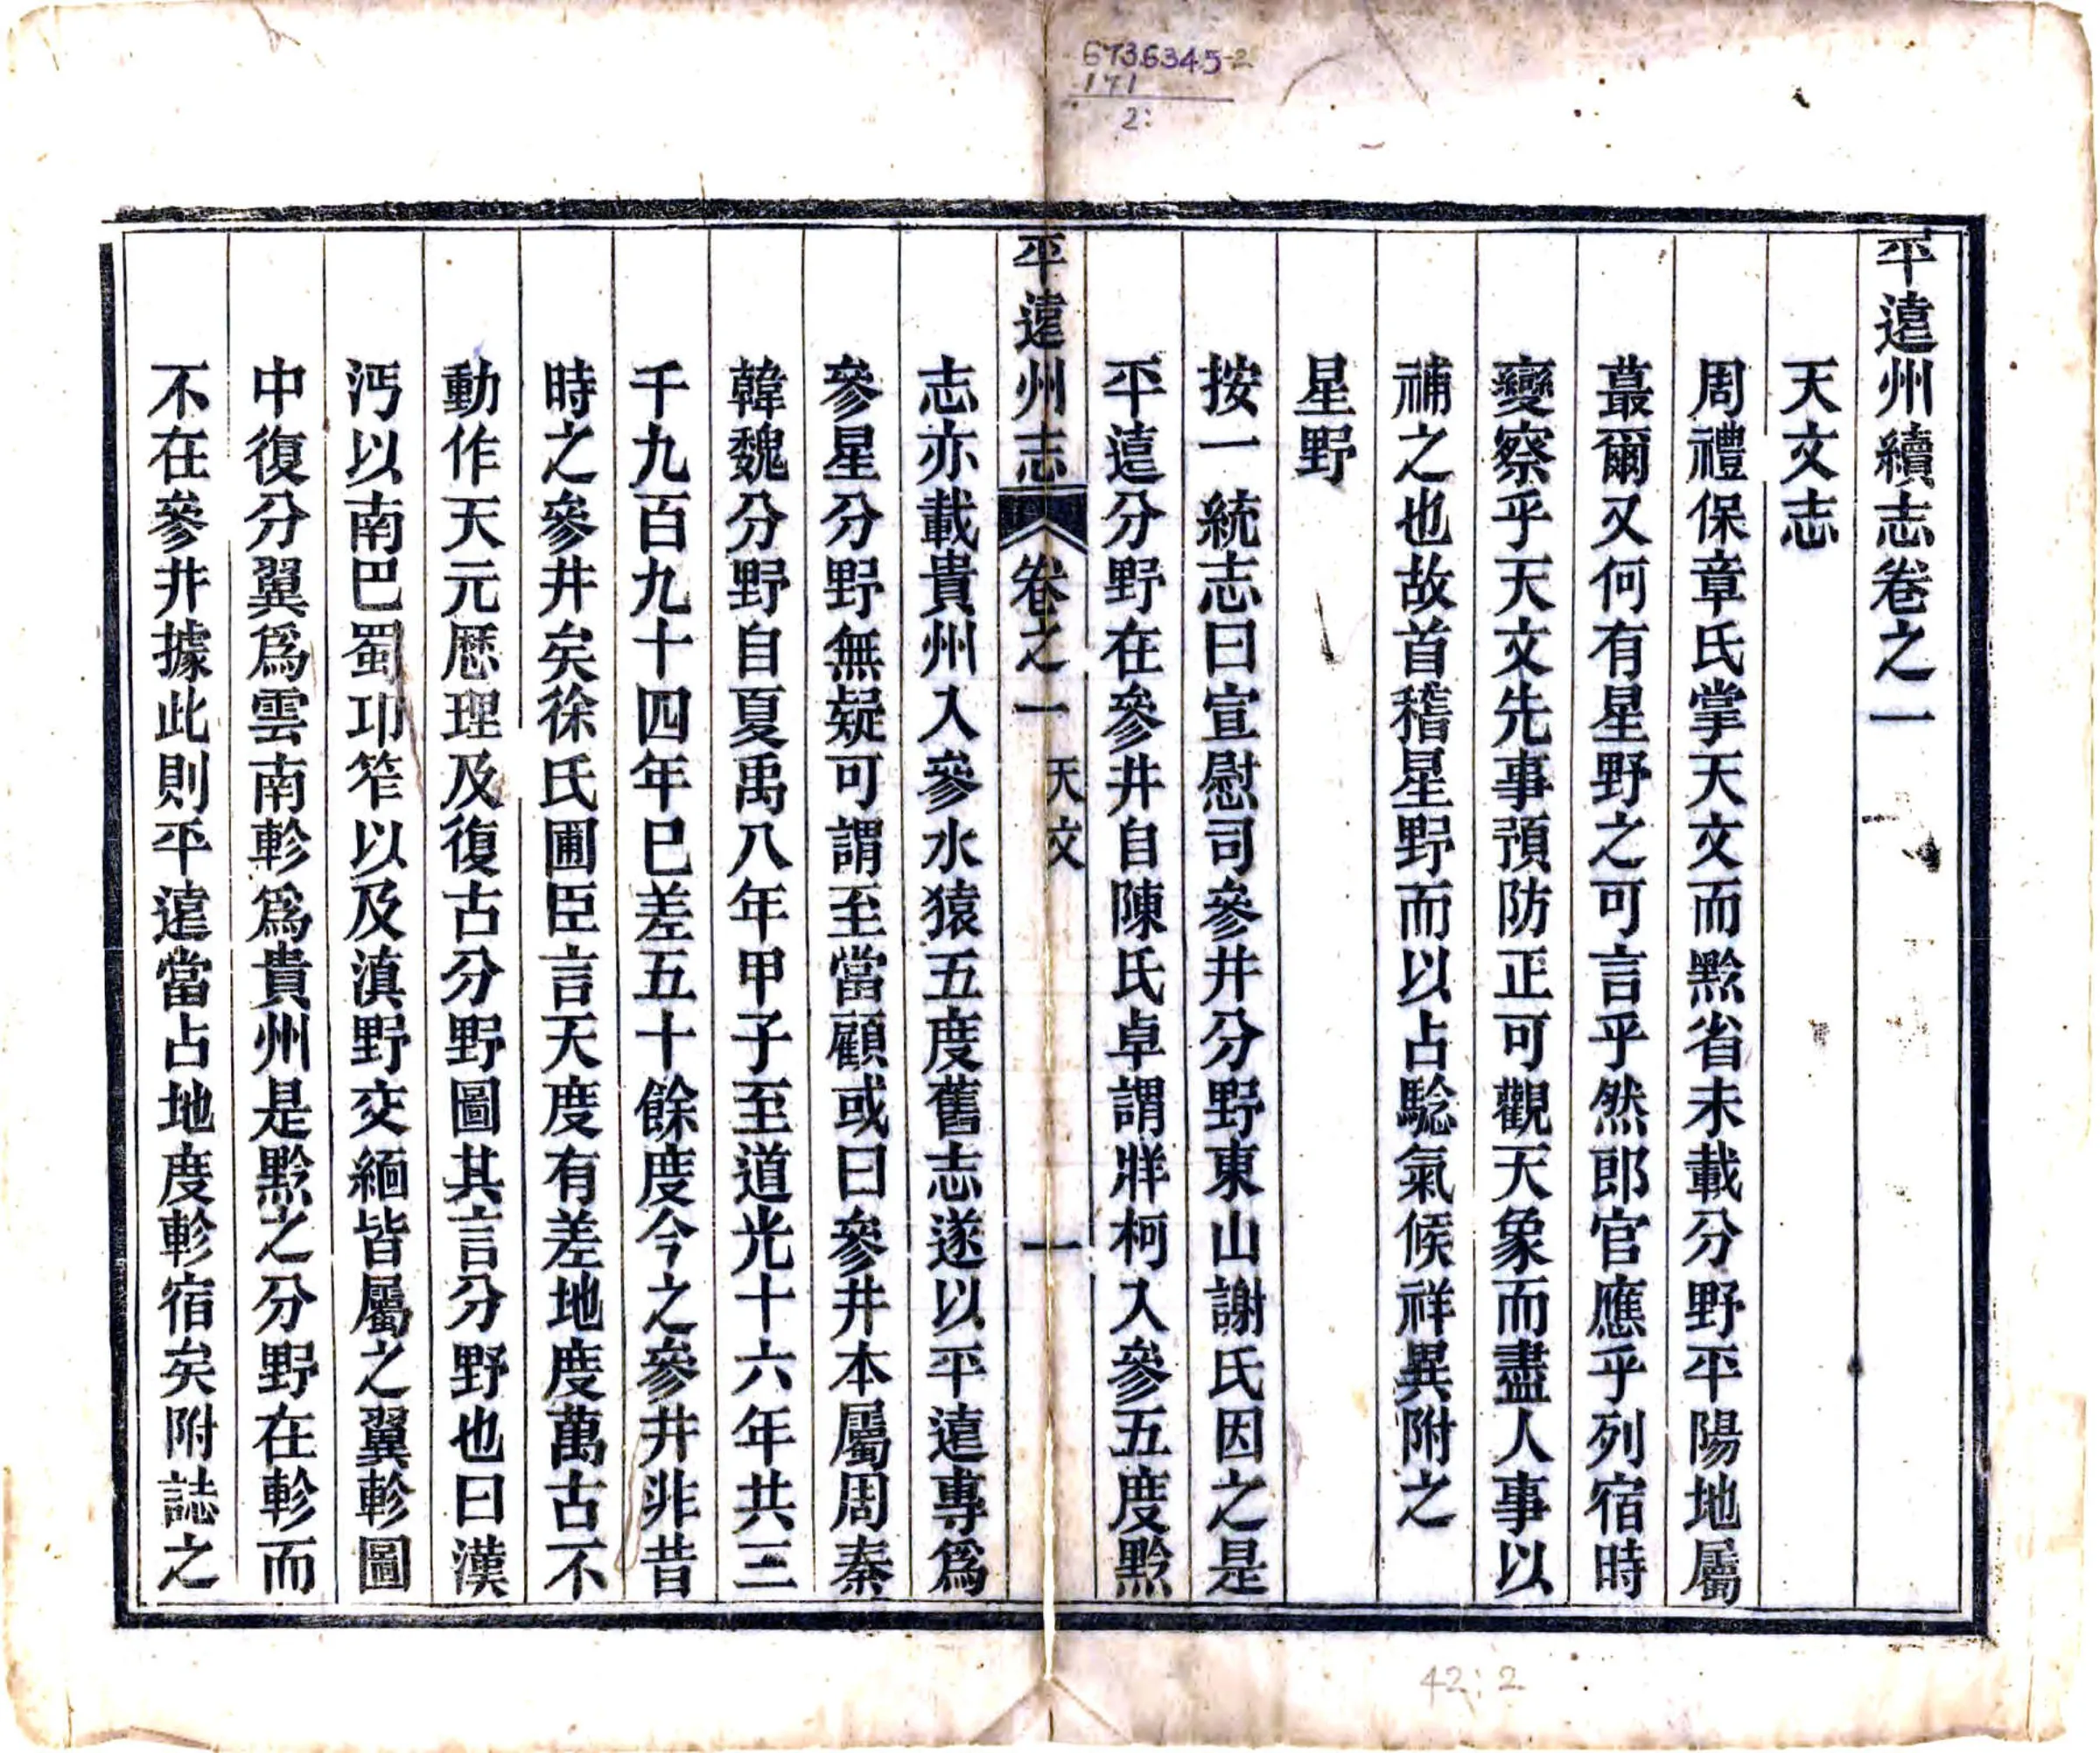 6736345-2
171
2:
平遠州續志卷之一
天文志
周禮保章氏掌天文而黔省未載分野平陽地屬
蕞爾又何有星野之可言乎然郎官應乎列宿時
變察乎天文先事預防正可觀天象而盡人事以
補之也故首稽星野而以占驗氣候祥異附之
星野
按一統志曰宣慰司參井分野東山謝氏因之是
平遠分野在參井自陳氏卓謂牂柯入參五度黔
平遠州志 卷之一 天文 一
志亦載貴州入參水猿五度舊志遂以平遠專為
參星分野無疑可謂至當顧或曰參井本屬周秦
韓魏分野自夏禹八年甲子至道光十六年共三
千九百九十四年巳差五十餘度今之參井非昔
時之參井矣徐氏圃臣言天度有差地度萬古不
動作天元歷理及復古分野圖其言分野也曰漢
沔以南巴蜀邛笮以及滇野交緬皆屬之翼軫圖
中復分翼為雲南軫為貴州是黔之分野在軫而
不在參井據此則平遠當占地度軫宿矣附誌之
42:2